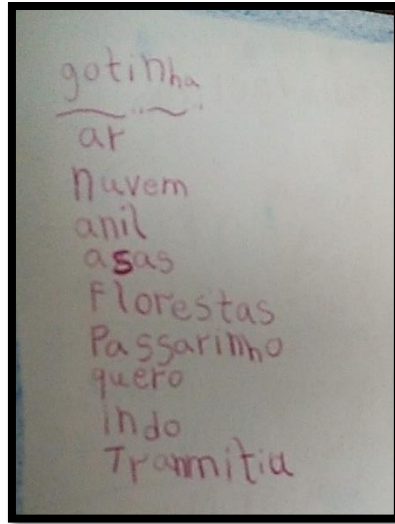 gotinha
ar
nuvem
anil
asas
Florestas
Passarinho
quero
indo
Tranmitiu